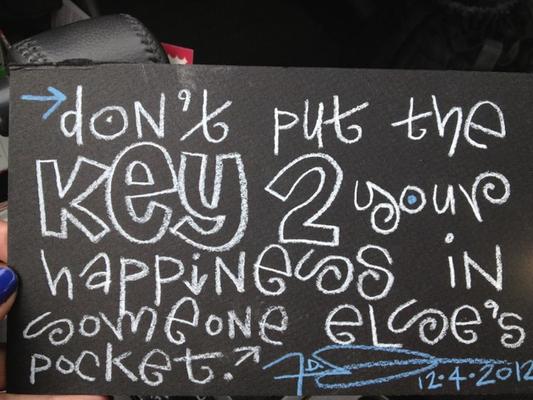 don't put the
Key 2 your
happiness in
someone else's
pocket.
12.4.2012